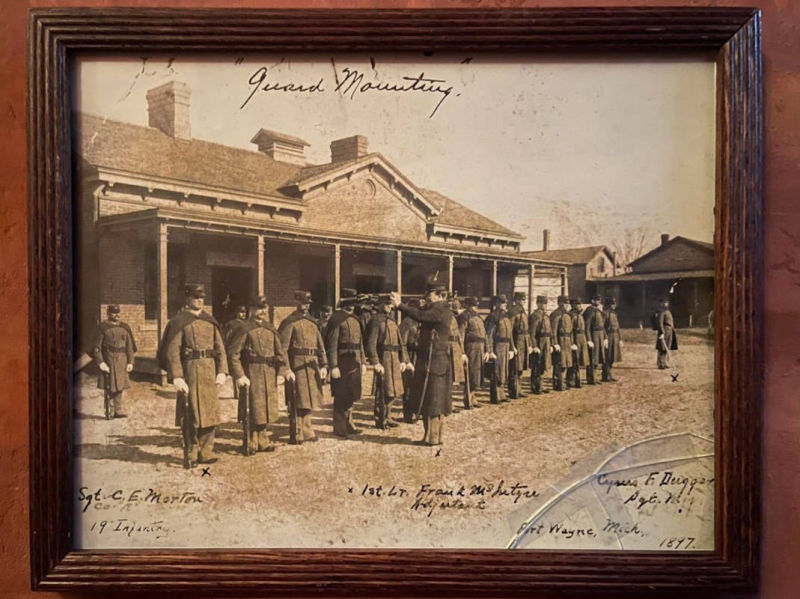 "Guard Mounting."
Sgt. C. E. Morton
Co.
19th Infantry.
x 1st. Lt. Frank McIntyre
Adjutant
Cyrus F. Dugger
Sgt. M
Fort Wayne, Mich.
1897.